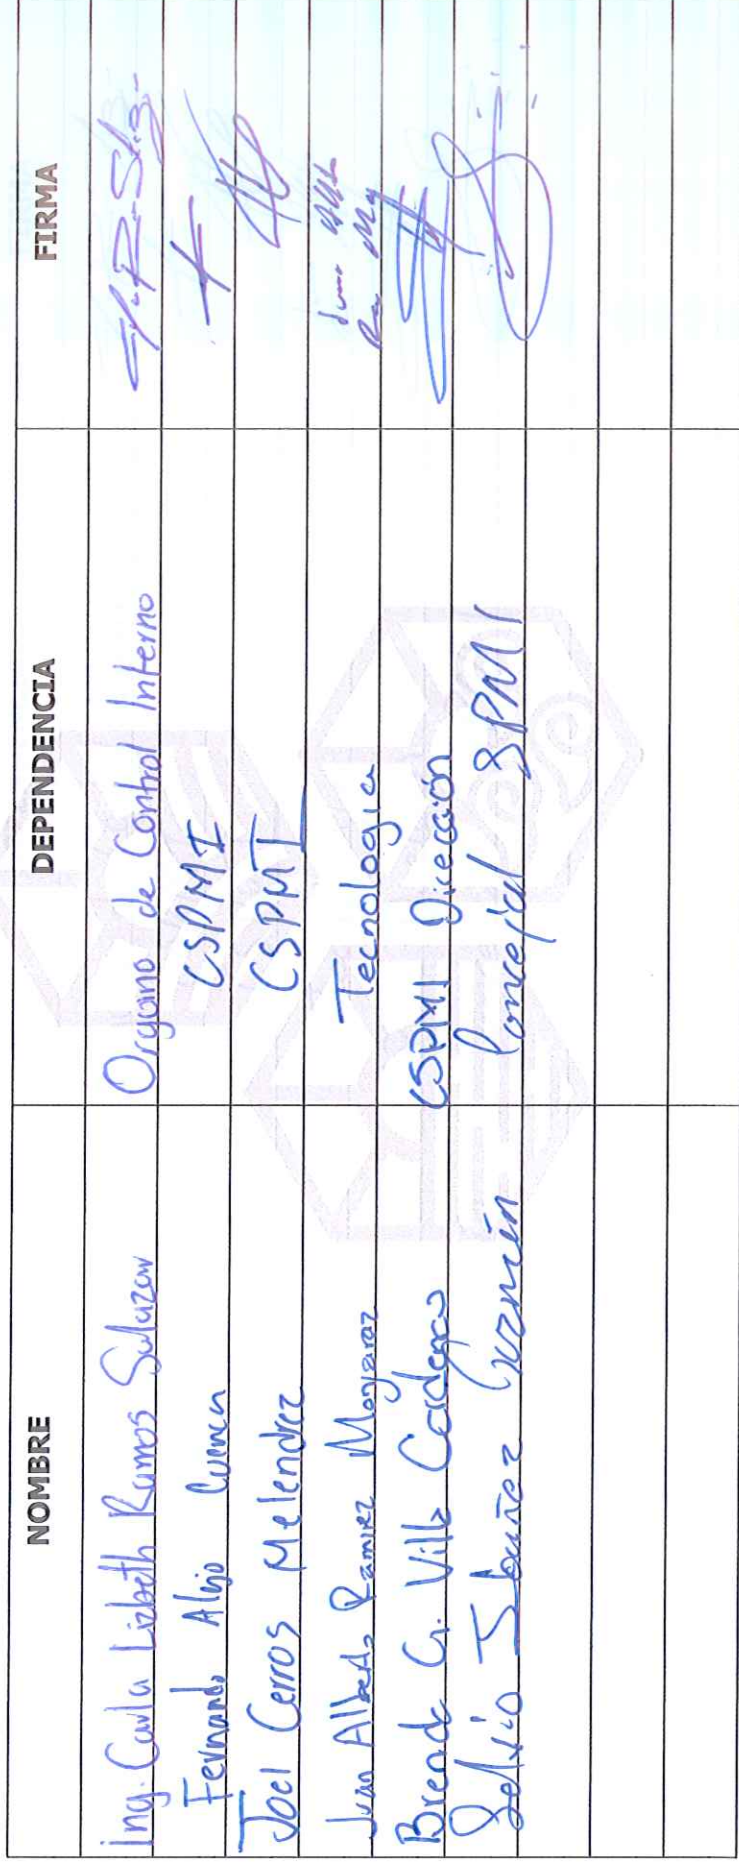 NOMBRE DEPENDENCIA FIRMA
Ing. Carla Lizbeth Ramos Salazar Organo de Control Interno
Fernando Alejo Cuenca CSPMI
Joel Cerros Melendrez CSPMI
Juan Alberto Ramirez Mojaraz Tecnologia
Brenda G. Villa Cardenas CSPMI Dirección
Ibañez Guzmán Concejal SPMI